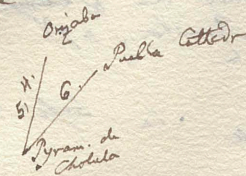 Orizaba
Puebla Cathedr
51 4.
6.
Pyram. de
Cholula